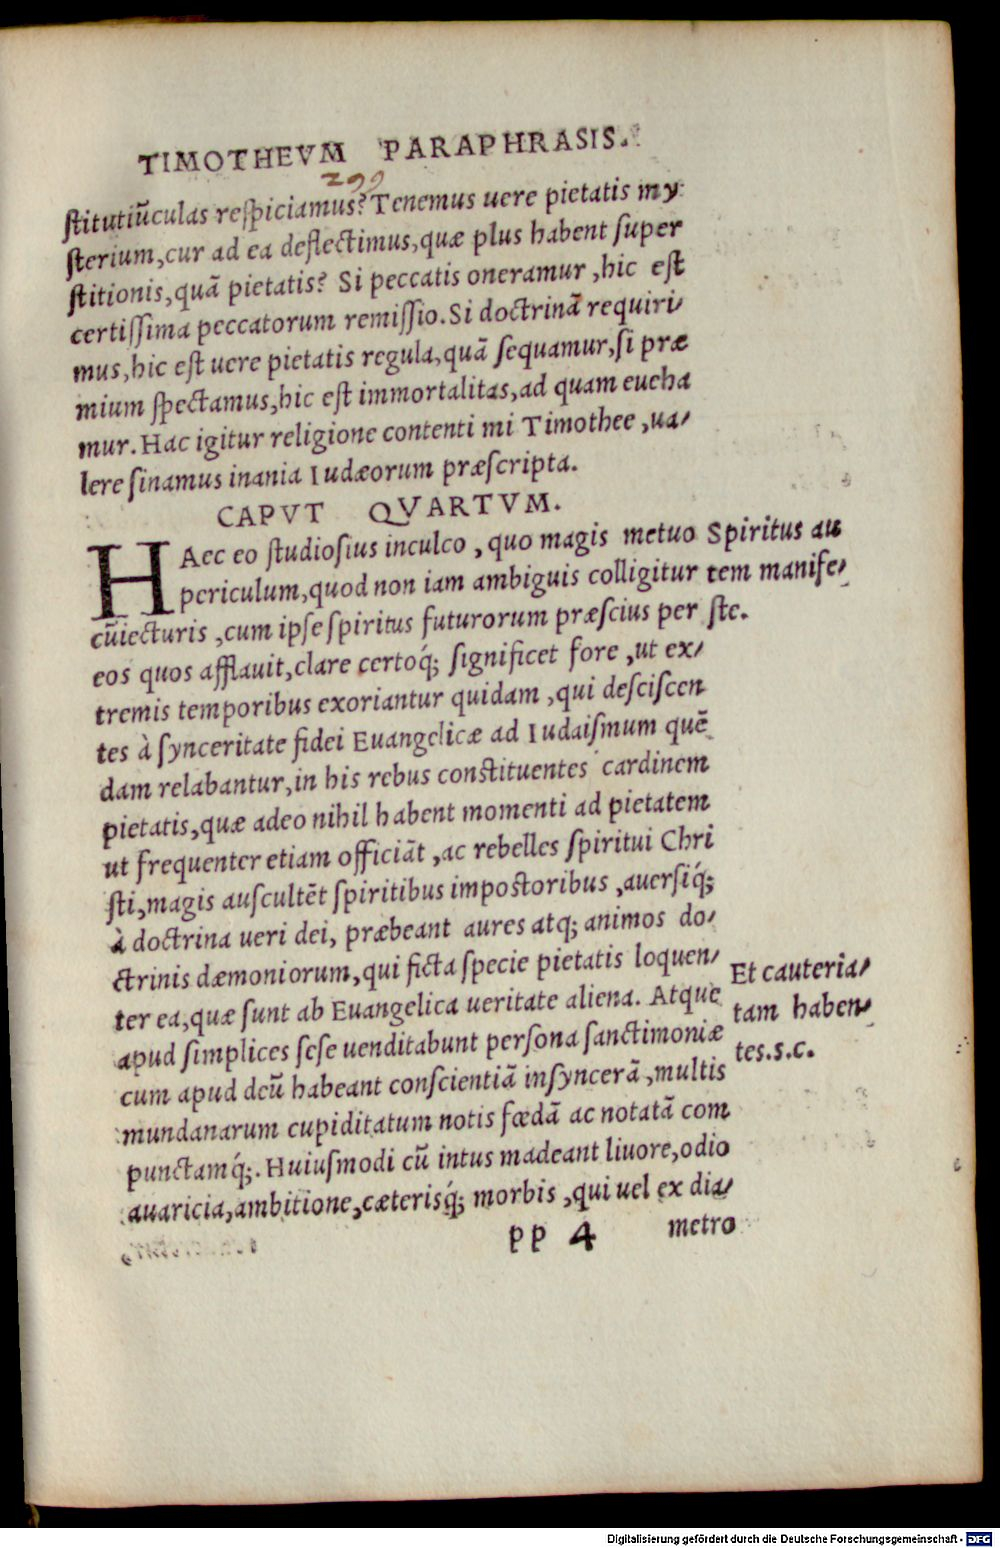 TIMOTHEVM PARAPHRASIS.
299
stitutiũculas respiciamus? Tenemus uere pietatis my-
sterium, cur ad ea deflectimus, quæ plus habent super
stitionis, quã pietatis? Si peccatis oneramur, hic est
certissima peccatorum remissio. Si doctrinã requiri-
mus, hic est uere pietatis regula, quã sequamur, si præ
mium spectamus, hic est immortalitas, ad quam eueha
mur. Hac igitur religione contenti mi Timothee, ua-
lere sinamus inania Iudæorum præscripta.
CAPVT QVARTVM.
HAec eo studiosius inculco, quo magis metuo
periculum, quod non iam ambiguis colligitur
cũiecturis, cum ipse spiritus futurorum præscius per
eos quos afflauit, clare certoq́; significet fore, ut ex-
tremis temporibus exoriantur quidam, qui desciscen
tes à synceritate fidei Euangelicæ ad Iudaismum quẽ
dam relabantur, in his rebus constituentes cardinem
pietatis, quæ adeo nihil habent momenti ad pietatem
ut frequenter etiam officiãt, ac rebelles spiritui Chri
sti, magis auscultẽt spiritibus impostoribus, auersiq́;
à doctrina ueri dei, præbeant aures atq; animos do-
ctrinis dæmoniorum, qui ficta specie pietatis loquen-
ter ea, quæ sunt ab Euangelica ueritate aliena. Atque
apud simplices sese uenditabunt persona sanctimoniæ
cum apud deũ habeant conscientiã insyncerã, multis
mundanarum cupiditatum notis fœdã ac notatã com
punctamq́;. Huiusmodi cũ intus madeant liuore, odio
auaricia, ambitione, cæterisq́; morbis, qui uel ex dia-
pp 4 metro
Spiritus au
tem manife-
ste.
Et cauteria-
tam haben-
tes.s.c.
Digitalisierung gefördert durch die Deutsche Forschungsgemeinschaft - DFG